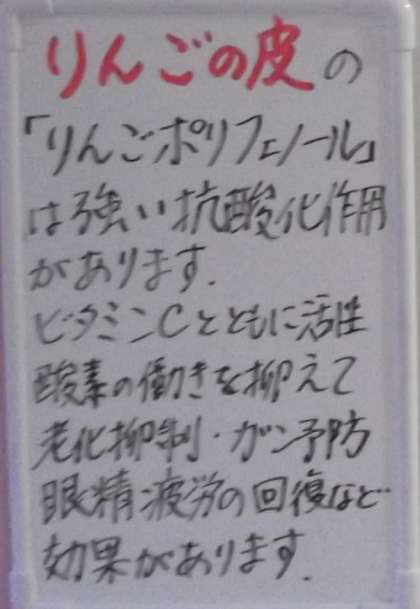 りんごの皮の
「りんごポリフェノール」
は強い抗酸化作用
があります.
ビタミンCとともに活性
酸素の働きを抑えて
老化抑制・ガン予防
眼精疲労の回復など
効果があります.